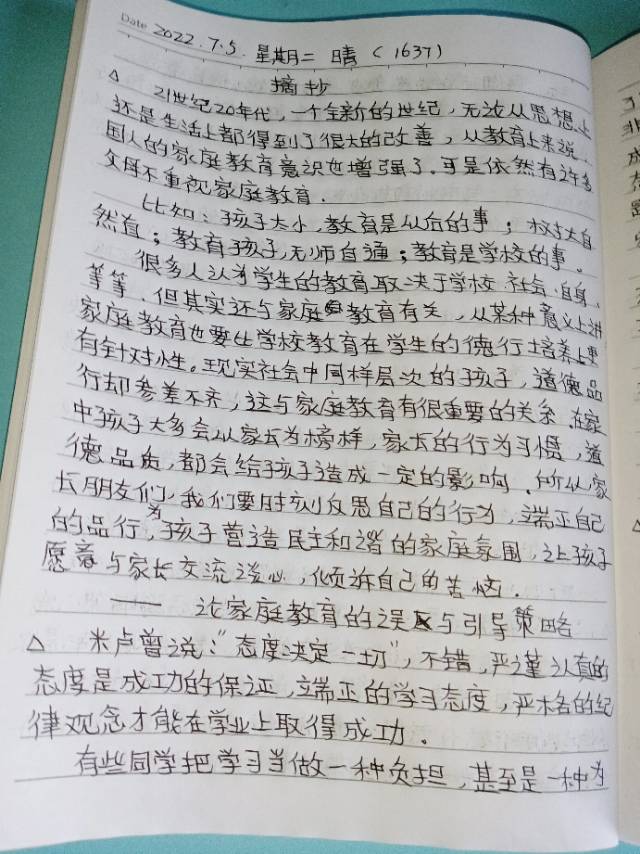 Date 2022.7.5. 星期二 晴 (1637)
摘抄
△ 21世纪20年代,一个全新的世纪,无论从思想上
还是生活上都得到了很大的改善,从教育上来说,
国人的家庭教育意识也增强了。可是依然有许多
父母不重视家庭教育.
比如:孩子太小,教育是以后的事;树大自
然直;教育孩子,无师自通;教育是学校的事。
很多人认为学生的教育取决于学校 社会、自身、
等等.但其实还与家庭教育有关,从某种意义上讲
家庭教育也要比学校教育在学生的德行培养上更
有针对性。现实社会中同样层次的孩子,道德品
行却参差不齐,这与家庭教育有很重要的关系.在家
中孩子大多会以家长为榜样,家长的行为习惯,道
德品质,都会给孩子造成一定的影响.所以,家
长朋友们,我们要时刻反思自己的行为,端正自己
的品行,为孩子营造民主和谐的家庭氛围,让孩子
愿意与家长交流谈心,倾诉自己的苦恼.
—— 论家庭教育的误区与引导策略
△ 米卢曾说:"态度决定一切",不错,严谨认真的
态度是成功的保证,端正的学习态度,严格的纪
律观念才能在学业上取得成功.
有些同学把学习当做一种负担,甚至是一种为